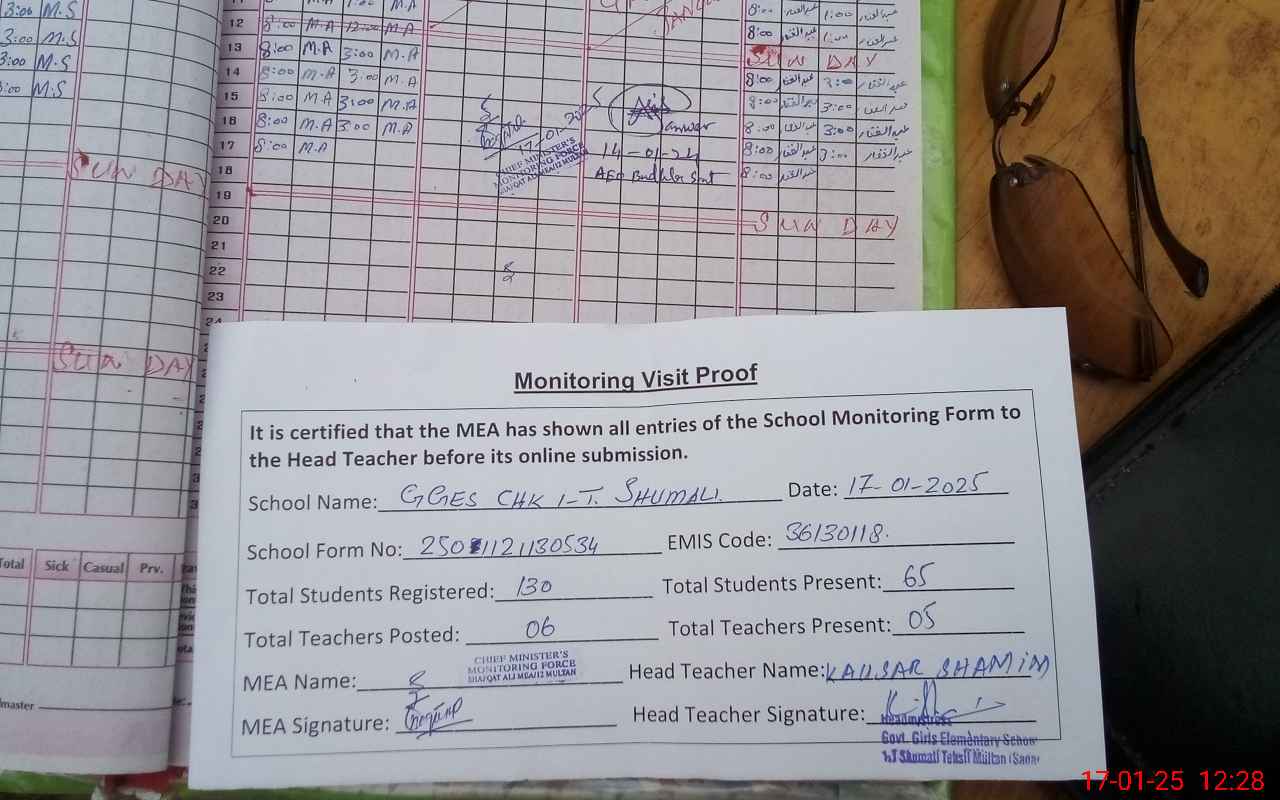 3:00 M.S
12 8:00 M.A 12:00 M.A
8:00 عبدالغفار
3:00 M.S
13 8:00 M.A 3:00 M.A
SUN DAY
3:00 M.S
14 8:00 M.A 3:00 M.A
8:00
3:00 M.S
15 8:00 M.A 3:00 M.A
8:00 3:00
16 8:00 M.A 3:00 M.A
Janwar
8:00 3:00 عبدالغفار
17 8:00 M.A
17-01-2025
14-01-24
8:00 3:00 عبدالغفار
CHIEF MINISTER'S
MONITORING FORCE
LIAQAT ALI MEA/12 MULTAN
AEO
SUN DAY
18
8:00
19
20
SUN DAY
21
22
23
24
SUN DAY
Total Sick Casual Prv.
master
Monitoring Visit Proof
It is certified that the MEA has shown all entries of the School Monitoring Form to
the Head Teacher before its online submission.
School Name: GGES CHK 1-T. SHUMALI. Date: 17-01-2025
School Form No: 2501121130534 EMIS Code: 36130118.
Total Students Registered: 130 Total Students Present: 65
Total Teachers Posted: 06 Total Teachers Present: 05
CHIEF MINISTER'S
MONITORING FORCE
LIAQAT ALI MEA/12 MULTAN
MEA Name: Head Teacher Name: KAUSAR SHAMIM
MEA Signature: Head Teacher Signature:
Headmistress
Govt. Girls Elementary School
1/T Shumali Tehsil Multan (Sadar
17-01-25 12:28